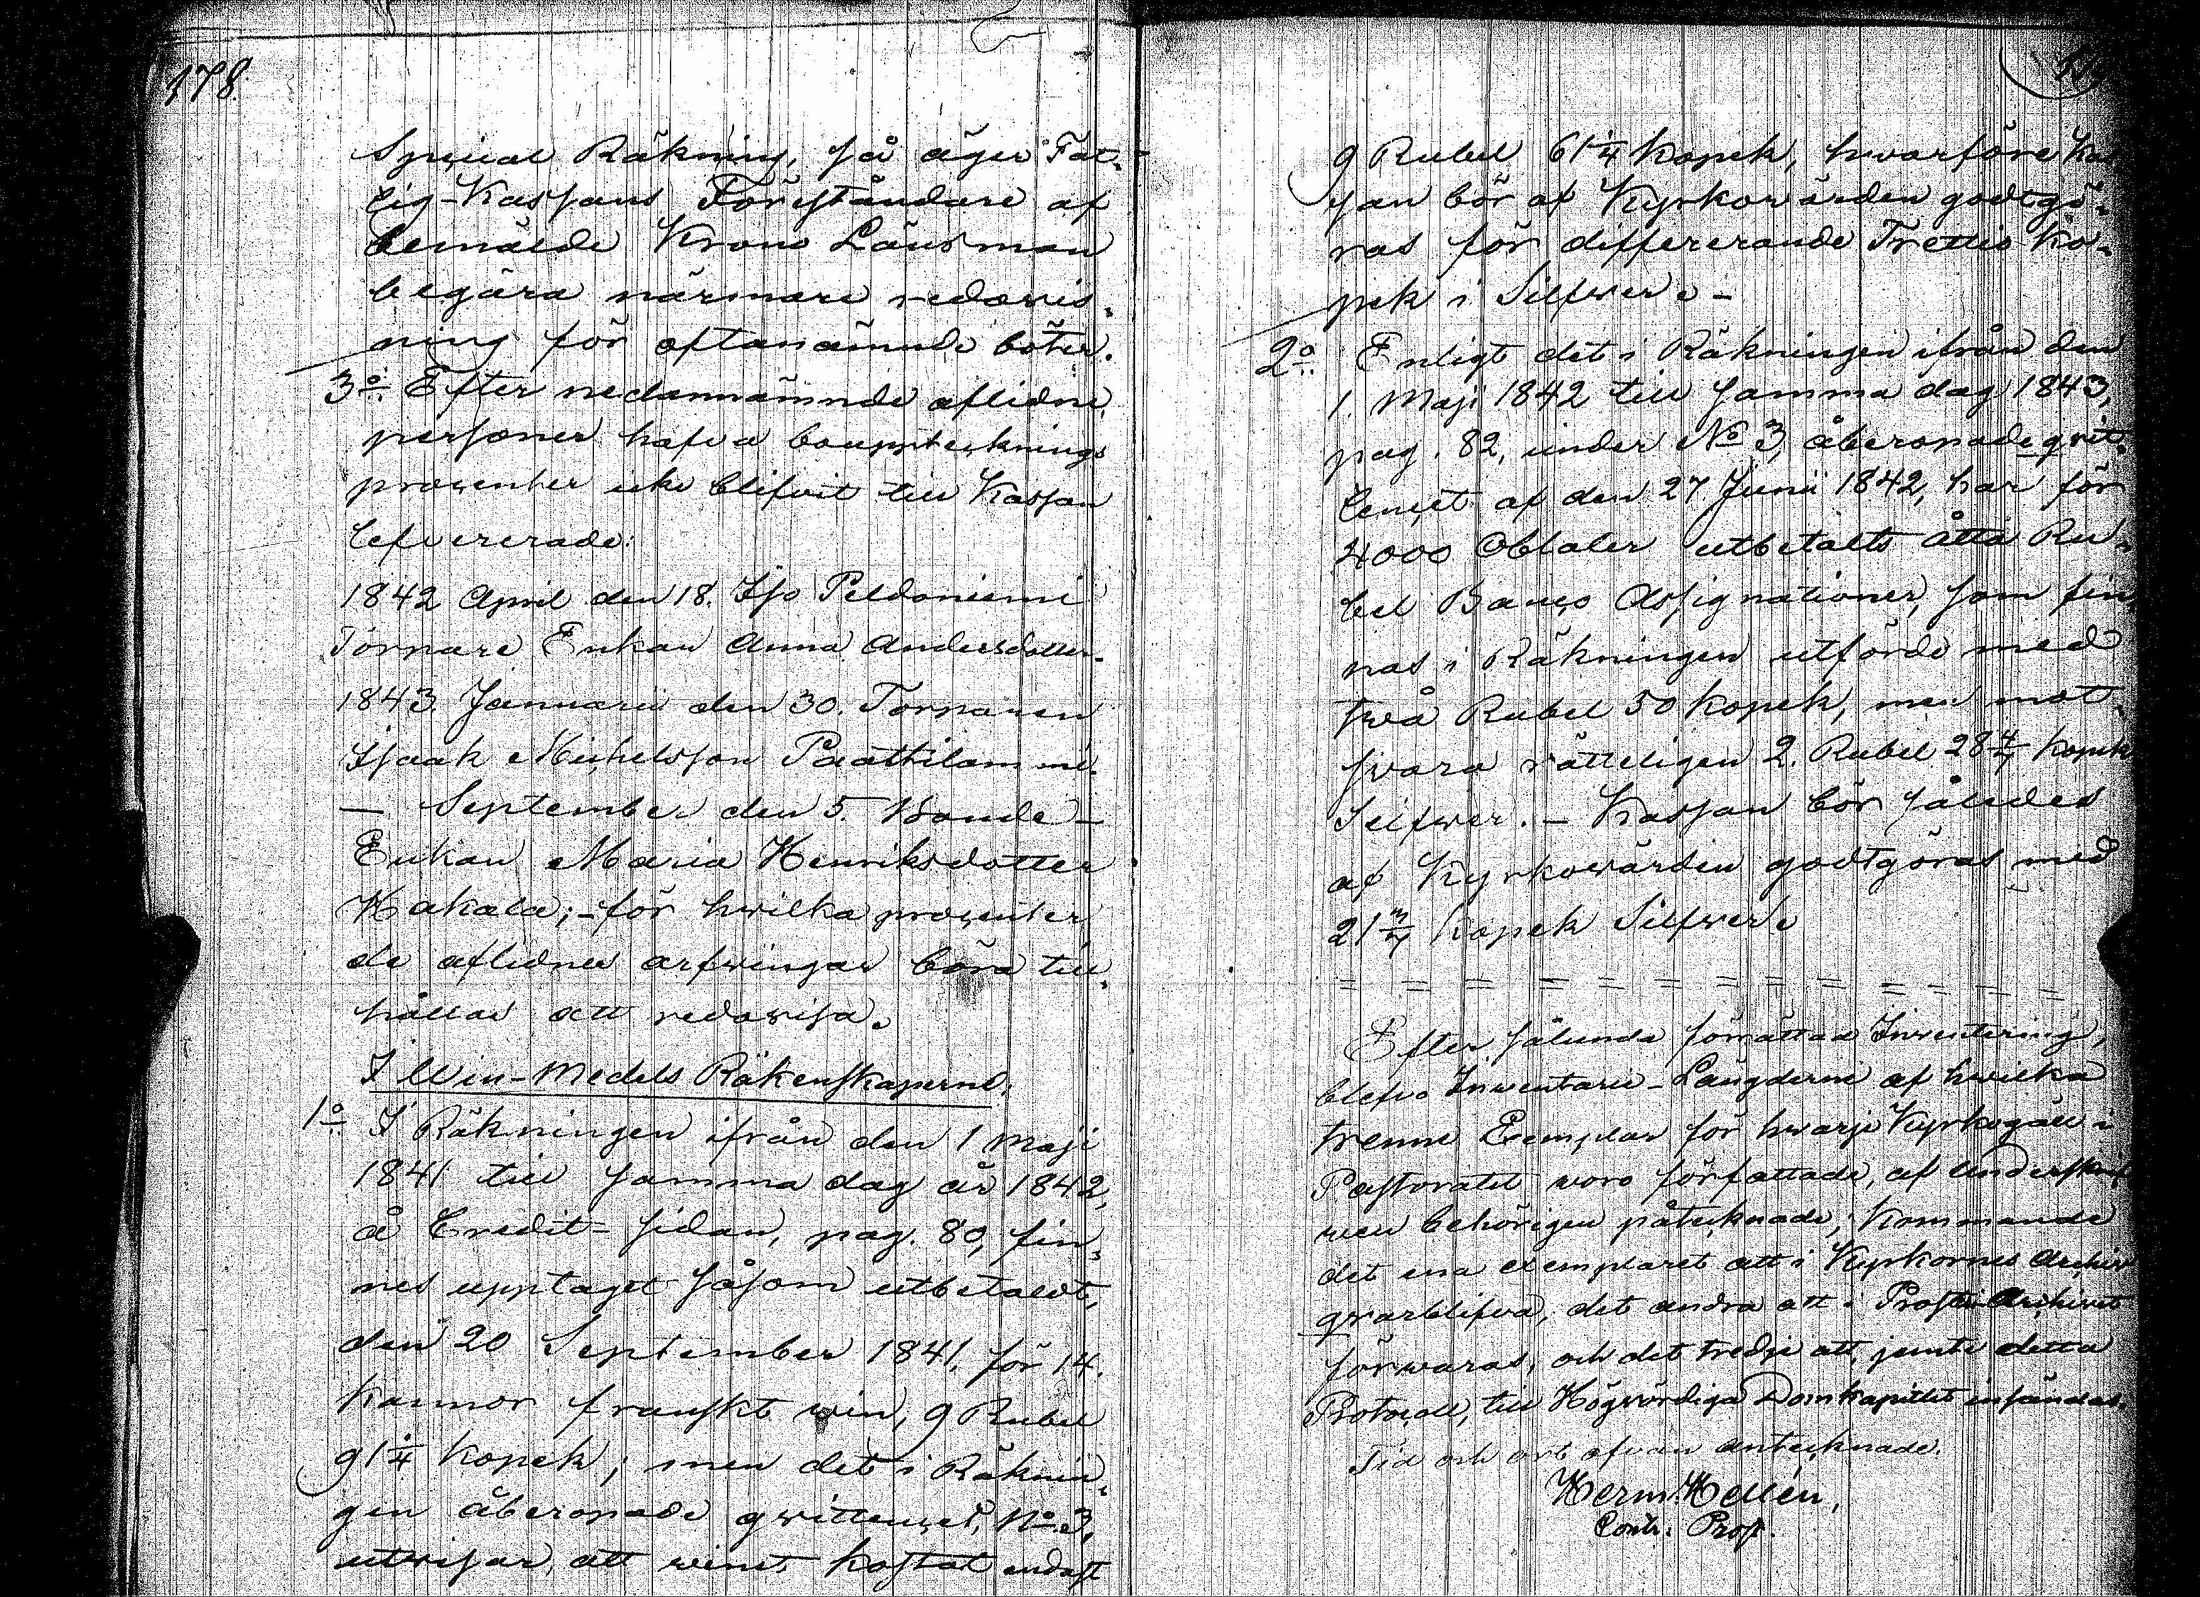 178.
Special Räkning, så äger Fat-
tig-Kassans Föreståndare af
bemälde Krono Länsman
begära närmare redovis-
ning för oftanämnde böter.
3:o Efter nedannämnde aflidne
personer hafva bouppteknings
procenter icke blifvit till Kassan
lefvererade:
1842 April den 18. Iso Peldoniemi
Torpare Enkan Anna Andersdotter.
1843 Januarii den 30. Torparen
Isaak Michelsson Paattilammi.
— September den 5. Bonde-
Enkan Maria Henriksdotter
Hakala; - för hvilka procenter
de aflidnes arfwingar böra till-
hållas att redovisa.
I Win-Medels Räkenskaperne.
1:o I Räkningen ifrån den 1 Maji
1841 till samma dag år 1842,
å Credit-sidan, pag. 80, fin-
nes upptaget såsom utbetaldt,
den 20 September 1841, för 14.
Kannor franskt win, 9 Rubel
91 1/4 Kopek; men det i Räknin-
gen åberopade qwittencet, No 3,
utvisar, att winet kostat endast
9 Rubel 61 1/4 Kopek, hvarföre Kas
san bör af Kyrkovärden godtgö-
ras för differerande Trettio Ko-
pek i Silfwer. -
2:o Enligt det i Räkningen ifrån den
1. Maji 1842 till samma dag 1843,
pag. 82, under No 3, åberopade qvit-
tencet af den 27 Junii 1842, har för
4000 Oblater utbetalts åtta Ru-
bel Banco Assignationer, som fin-
nas i Räkningen utförde med
två Rubel 50 Kopek, men mot-
svara rätteligen 2. Rubel 28 4/7 Kopek
Silfwer. - Kassan bör således
af Kyrkovärden godtgöras med
21 3/7 Kopek Silfwer.
= = = = = = = = = = = =
Efter sålunda förrättad Inventering,
blefvo Inventarii-Längderne af hwilka
trenne Exemplar för hvarje Kyrkogäll i
Pastoratet woro författade, af Underskrif
wen behörigen påteknade; Kommande
det ena exemplaret att i Kyrkornes Archiv
qvarblifva, det andra att i Prosteri-Archivet
förwaras, och det tredje att, jemte detta
Protocoll, till Högvördiga Domkapitlet insändas.
Tid och ort ofvan antecknade.
Herm: Hellén,
Contr. Prost.